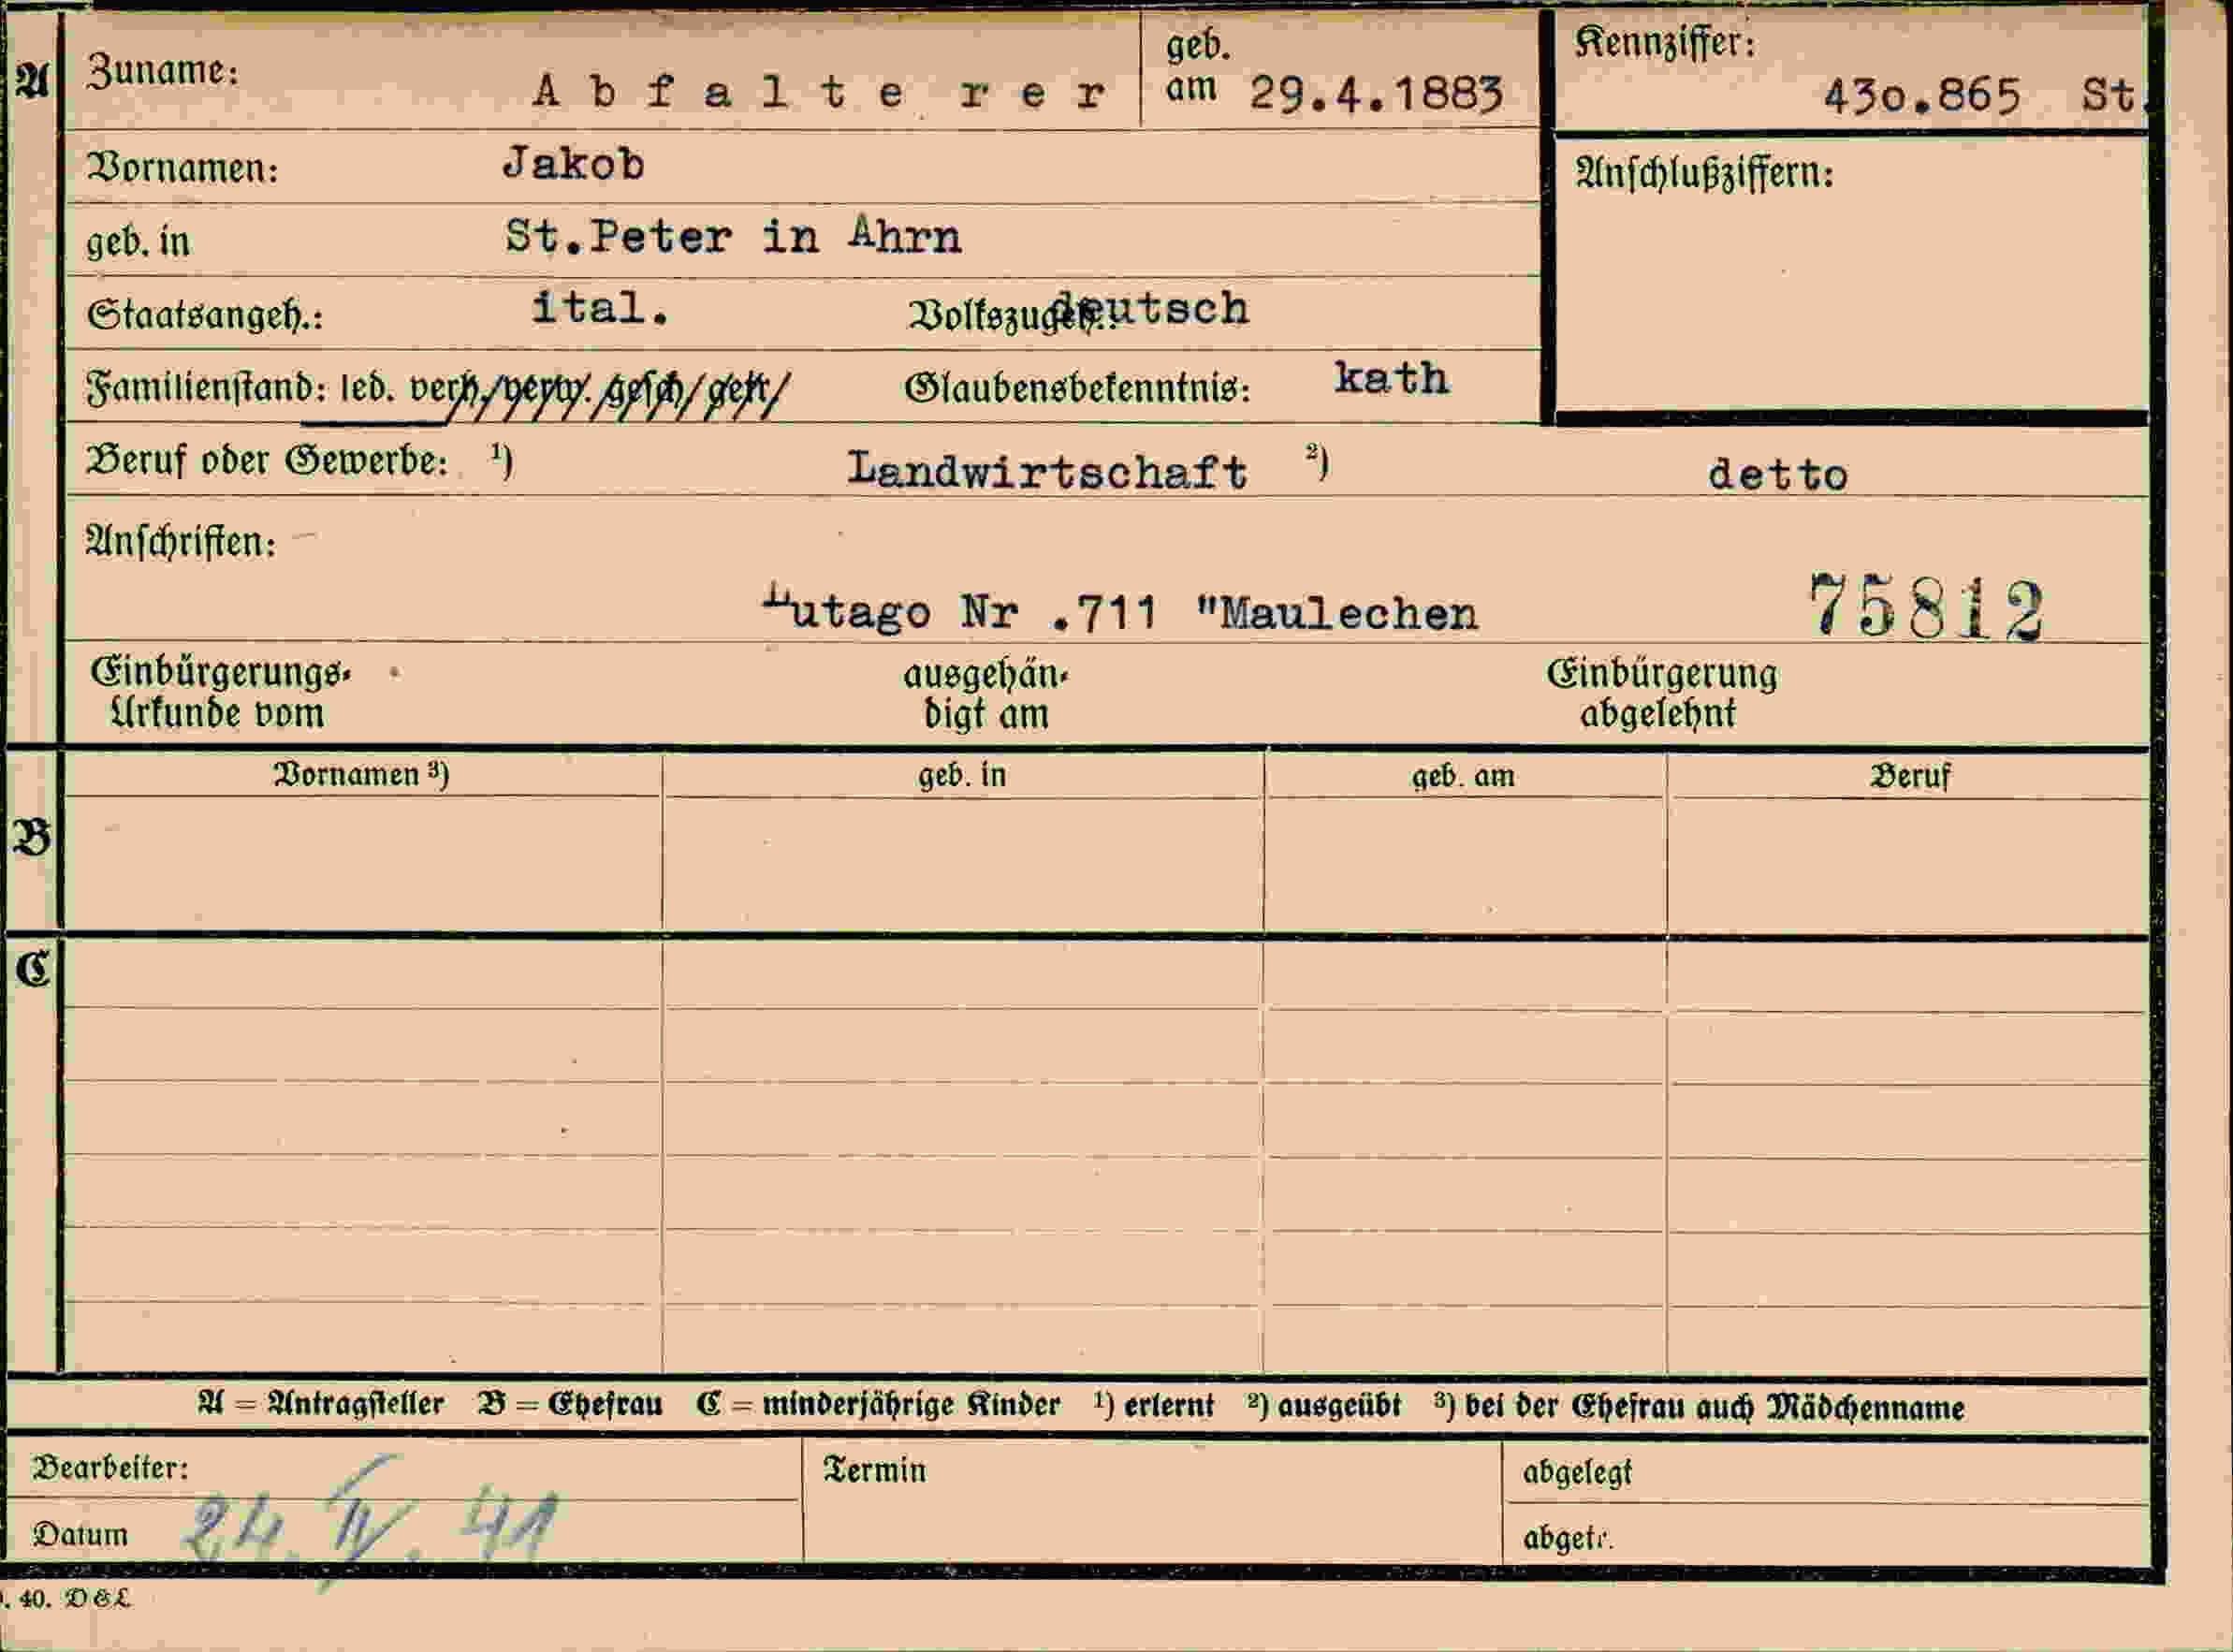 A Zuname: Abfalterer geb. am 29.4.1883 Kennziffer: 430.865 St.
Vornamen: Jakob Anschlußziffern:
geb. in St.Peter in Ahrn
Staatsangeh.: ital. Volkszugeh.: deutsch
Familienstand: led. verh./verw./gesch/getr/ Glaubensbekenntnis: kath
Beruf oder Gewerbe: ¹) Landwirtschaft ²) detto
Anschriften:
Lutago Nr .711 "Maulechen 75812
Einbürgerungs-Urkunde vom ausgehändigt am Einbürgerung abgelehnt
Vornamen ³) geb. in geb. am Beruf
B
C
A = Antragsteller B = Ehefrau C = minderjährige Kinder ¹) erlernt ²) ausgeübt ³) bei der Ehefrau auch Mädchenname
Bearbeiter: Termin abgelegt
Datum 24. IV. 41 abgetr.
. 40. D&L